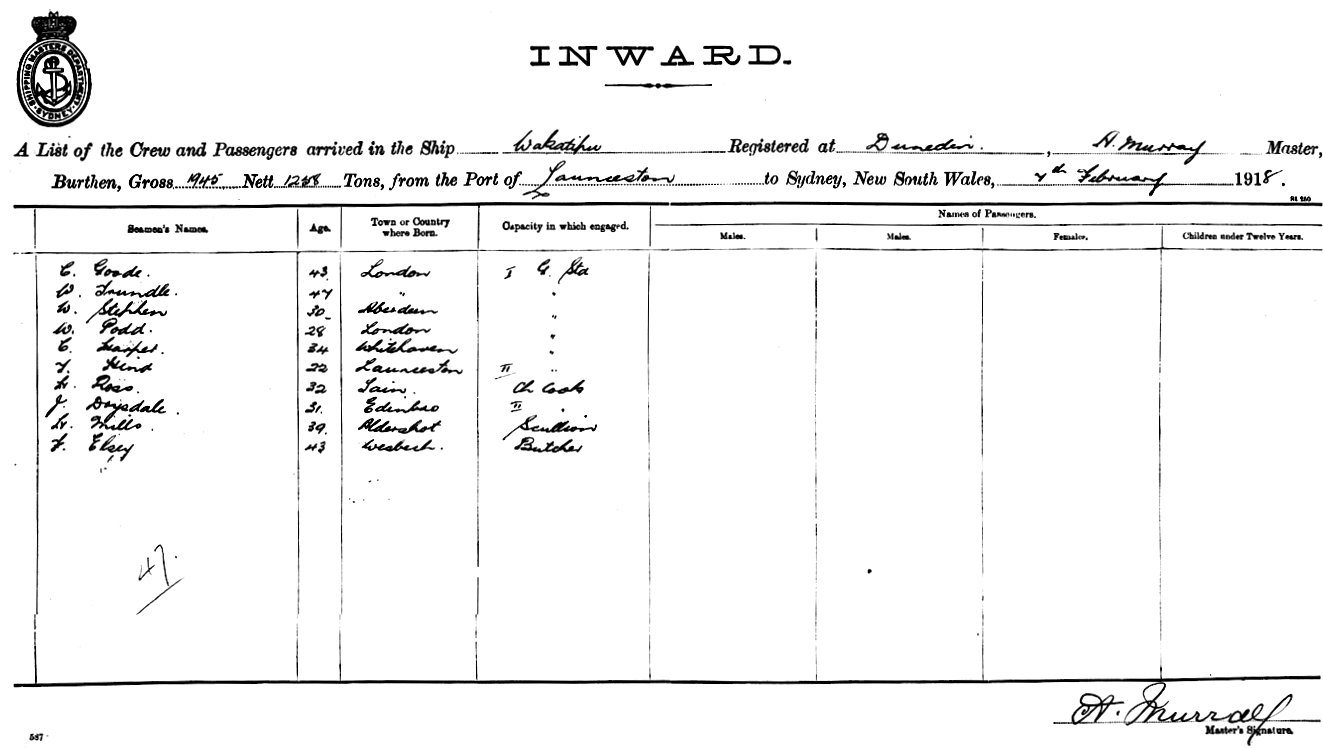 SHIPPING MASTERS DEPARTMENT
SYDNEY
INWARD.
A List of the Crew and Passengers arrived in the Ship Wakatipu Registered at Dunedin. , A. Murray Master,
Burthen, Gross 1945 Nett 1258 Tons, from the Port of Launceston to Sydney, New South Wales, 7th February 1918.
Seamen's Names. Age. Town or Country where Born. Capacity in which engaged. Names of Passengers.
Males. Males. Females. Children under Twelve Years.
C. Goode. 43 London I G. Std
W. Trundle. 47 " "
W. Stephen 30 Aberdeen "
W. Podd. 28 London "
C. Harper. 34 Whitehaven "
T. Hind 22 Launceston II "
H. Ross. 32 Tain. Ch Cook
J. Drysdale. 31. Edinbro II "
H. Mills. 39. Aldershot Scullion
F. Elsey 43 Wesbech. Butcher
47.
A. Murray
Master's Signature.
587